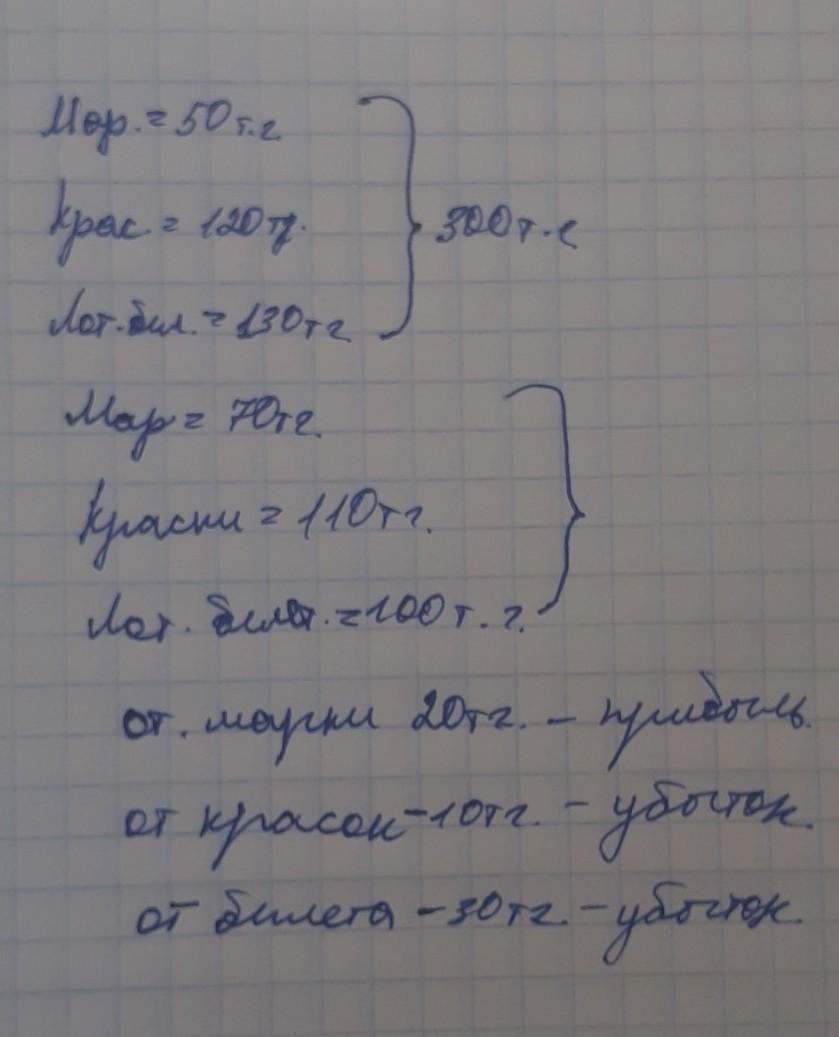 Мар. = 50 т.г.
Крас. = 120 тг.
300 т.г
Лот. бил. = 130 тг.
Мар = 70 тг.
Краски = 110 тг.
Лот. билет. = 100 т. г.
от. марки 20 тг. – прибыль.
от красок – 10 тг. – убыток.
от билета – 30 тг. – убыток.